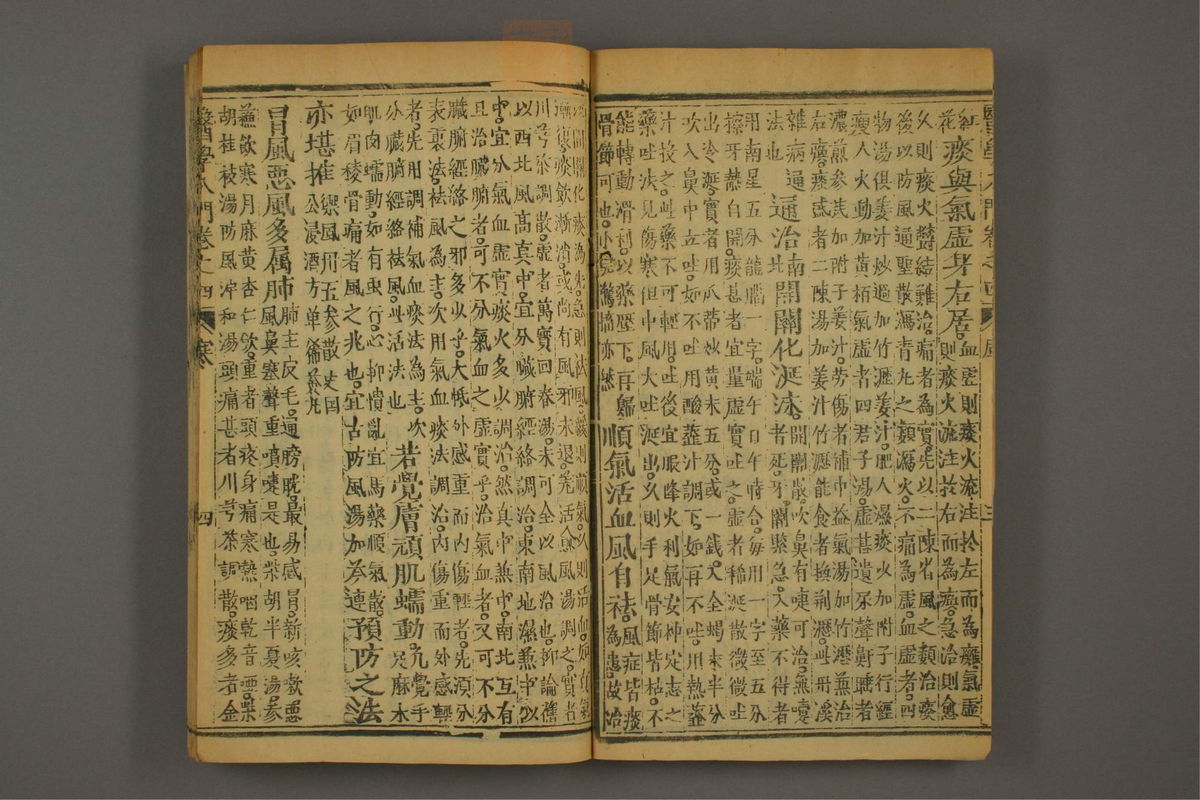 醫學入門卷之四 風 三
紅花 痰與氣虛身右居 血虛則痰火流注於左而為癱氣虛
則痰火流注於右而為瘓急治則愈
久則痰火鬱結難治痛者為實先以二陳
後以防風通聖散 不痛為虛血虛者四
物湯俱姜汁炒過加竹瀝姜汁肥人濕痰火加附子行經
瘦人火動加黃栢氣虛者四君子湯虛甚遺尿聲鼾睡者
濃煎參茋加附子姜汁勞傷者補中益氣湯加竹瀝兼治
右癱痰盛者二陳湯加姜汁竹瀝能食者換荊瀝此丹溪
雜病通法也 通治南北開關化涎沫 開關散吹鼻有嚏可治無嚏
者死牙關緊急入藥不得者
用南星五分龍腦一字端午日午時合每用一字至五分
擦牙熱自開痰甚者宜量虛實吐之虛者稀涎散微微吐
出冷涎實者用瓜蒂炒黃末五分或一錢入全蝎末半分
吹入鼻中立吐如不吐用酸虀汁調下如再不吐用熱虀
汁投之此藥不可輕用吐後宜服降火利氣安神定志之
藥吐法見傷寒但中風大吐涎出久則手足骨節皆枯不
能轉動滑利以藥壓下再歸
骨節可也小兒驚癇亦然 順氣活血風自祛 風症皆痰
為患故治
開關化痰為先急則祛風緩則順氣久則活血
痰飲漸消或尚有風邪未退羌活愈風湯調之實者
川芎茶調散虛者萬寶回春湯未可全以風治也抑論舊
以西北風高真中宜分臟腑經絡調治東南地濕兼中以
中宜分氣血虛實痰火多少調治然真中兼中南北互有
且治臟腑者可不分氣血之虛實乎治氣血者又可不分
臟腑經絡之邪多少乎大抵外感重而內傷輕者先須分
表裏法祛風為主次用氣血痰法調治內傷重而外感輕
者先用調補氣血痰法為主次
分臟腑經絡祛風此活法也 若覺膚頑肌蠕動 凡覺手
足麻木
肌肉蠕動如有虫行心抑憒亂宜烏藥順氣散
如眉稜骨痛者風之兆也宜古防風湯加芩連 預防之法
亦堪推 公浸酒方單豨薟丸
冒風惡風多屬肺 肺主皮毛通膀胱最易感冒新咳嗽惡
風鼻塞聲重噴嚏是也柴胡半夏湯參
蘇飲寒月麻黃杏仁飲重者頭疼身痛寒熱咽乾音啞柴
胡桂枝湯防風冲和湯頭痛甚者川芎茶調散痰多者金
醫學入門卷之四 寒 四